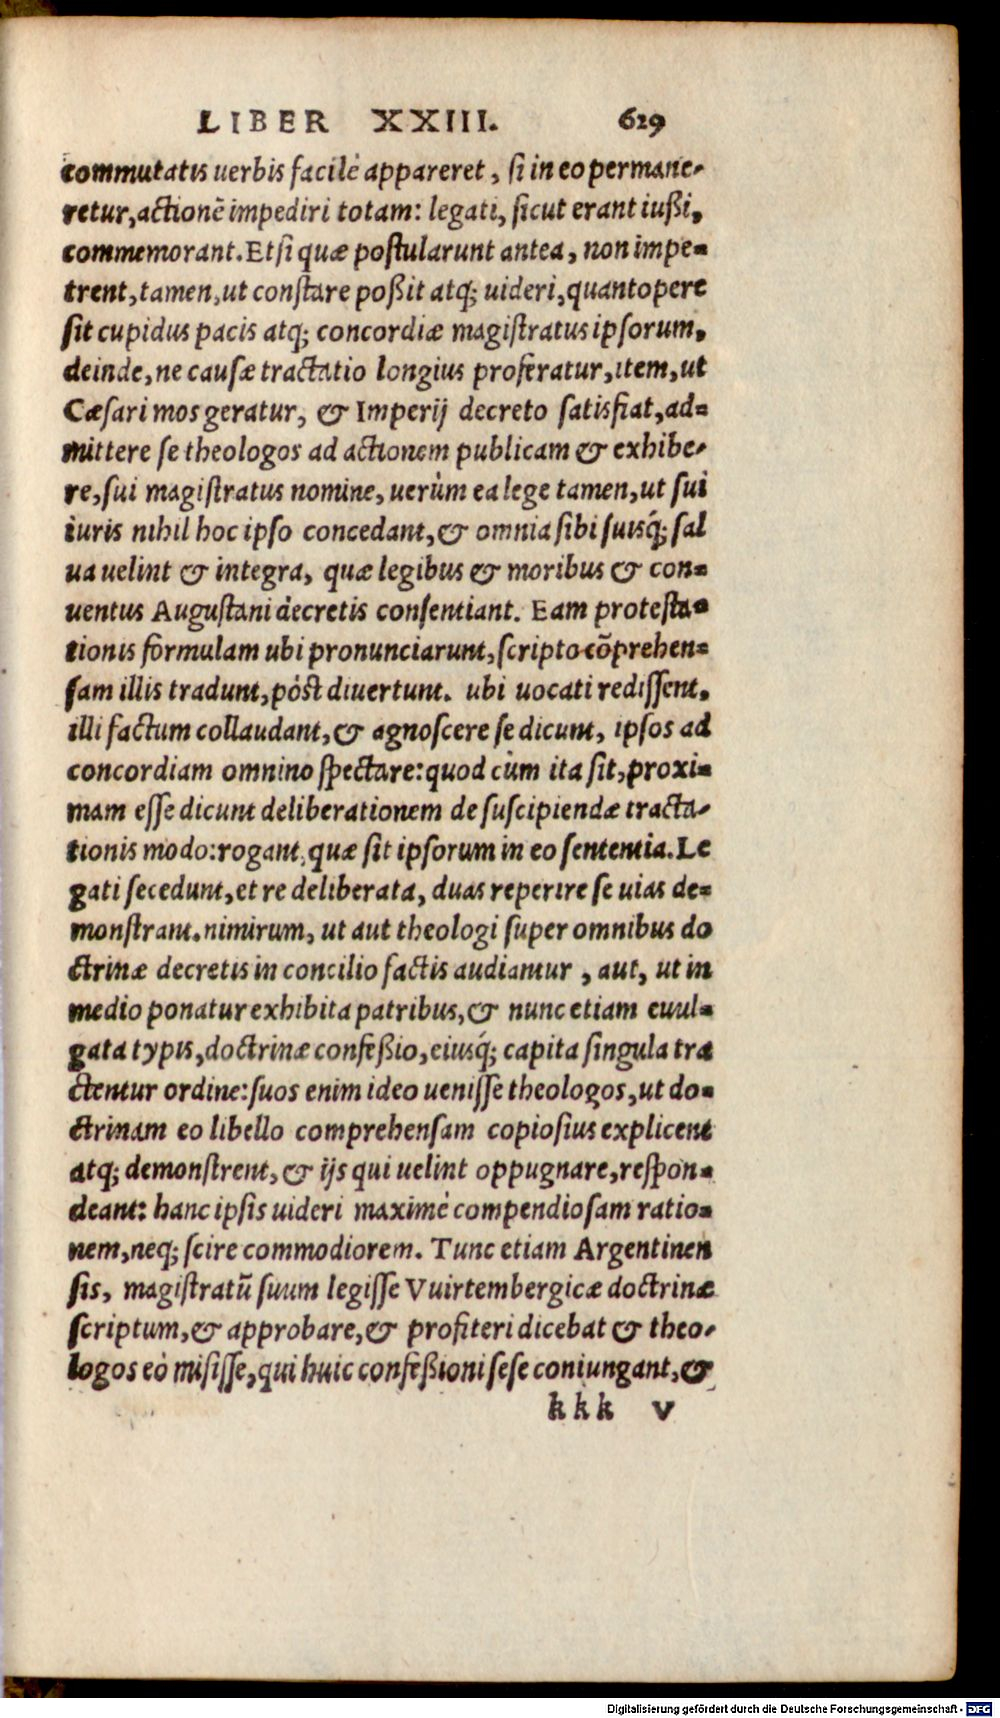 LIBER XXIII. 629
commutatis uerbis facilè appareret, si in eo permane-
retur, actionē impediri totam: legati, sicut erant iußi,
commemorant. Etsi quæ postularunt antea, non impe-
trent, tamen, ut constare poßit atq; uideri, quantopere
sit cupidus pacis atq; concordiæ magistratus ipsorum,
deinde, ne causæ tractatio longius proferatur, item, ut
Cæsari mos geratur, & Imperij decreto satisfiat, ad-
mittere se theologos ad actionem publicam & exhibe-
re, sui magistratus nomine, uerùm ea lege tamen, ut sui
iuris nihil hoc ipso concedant, & omnia sibi suisq́; sal
ua uelint & integra, quæ legibus & moribus & con-
uentus Augustani decretis consentiant. Eam protesta-
tionis formulam ubi pronunciarunt, scripto cōprehen-
sam illis tradunt, pòst diuertunt. ubi uocati redissent,
illi factum collaudant, & agnoscere se dicunt, ipsos ad
concordiam omnino spectare: quod cùm ita sit, proxi-
mam esse dicunt deliberationem de suscipiendæ tracta-
tionis modo: rogant, quæ sit ipsorum in eo sententia. Le
gati secedunt, et re deliberata, duas reperire se uias de-
monstrant. nimirum, ut aut theologi super omnibus do
ctrinæ decretis in concilio factis audiantur, aut, ut in
medio ponatur exhibita patribus, & nunc etiam euul-
gata typis, doctrinæ confeßio, eiusq́; capita singula tra
ctentur ordine: suos enim ideo uenisse theologos, ut do-
ctrinam eo libello comprehensam copiosius explicent
atq; demonstrent, & ijs qui uelint oppugnare, respon-
deant: hanc ipsis uideri maximè compendiosam ratio-
nem, neq; scire commodiorem. Tunc etiam Argentinen
sis, magistratū suum legisse Vuirtembergicæ doctrinæ
scriptum, & approbare, & profiteri dicebat & theo-
logos eò misisse, qui huic confeßioni sese coniungant, &
kkk v
Digitalisierung gefördert durch die Deutsche Forschungsgemeinschaft - DFG